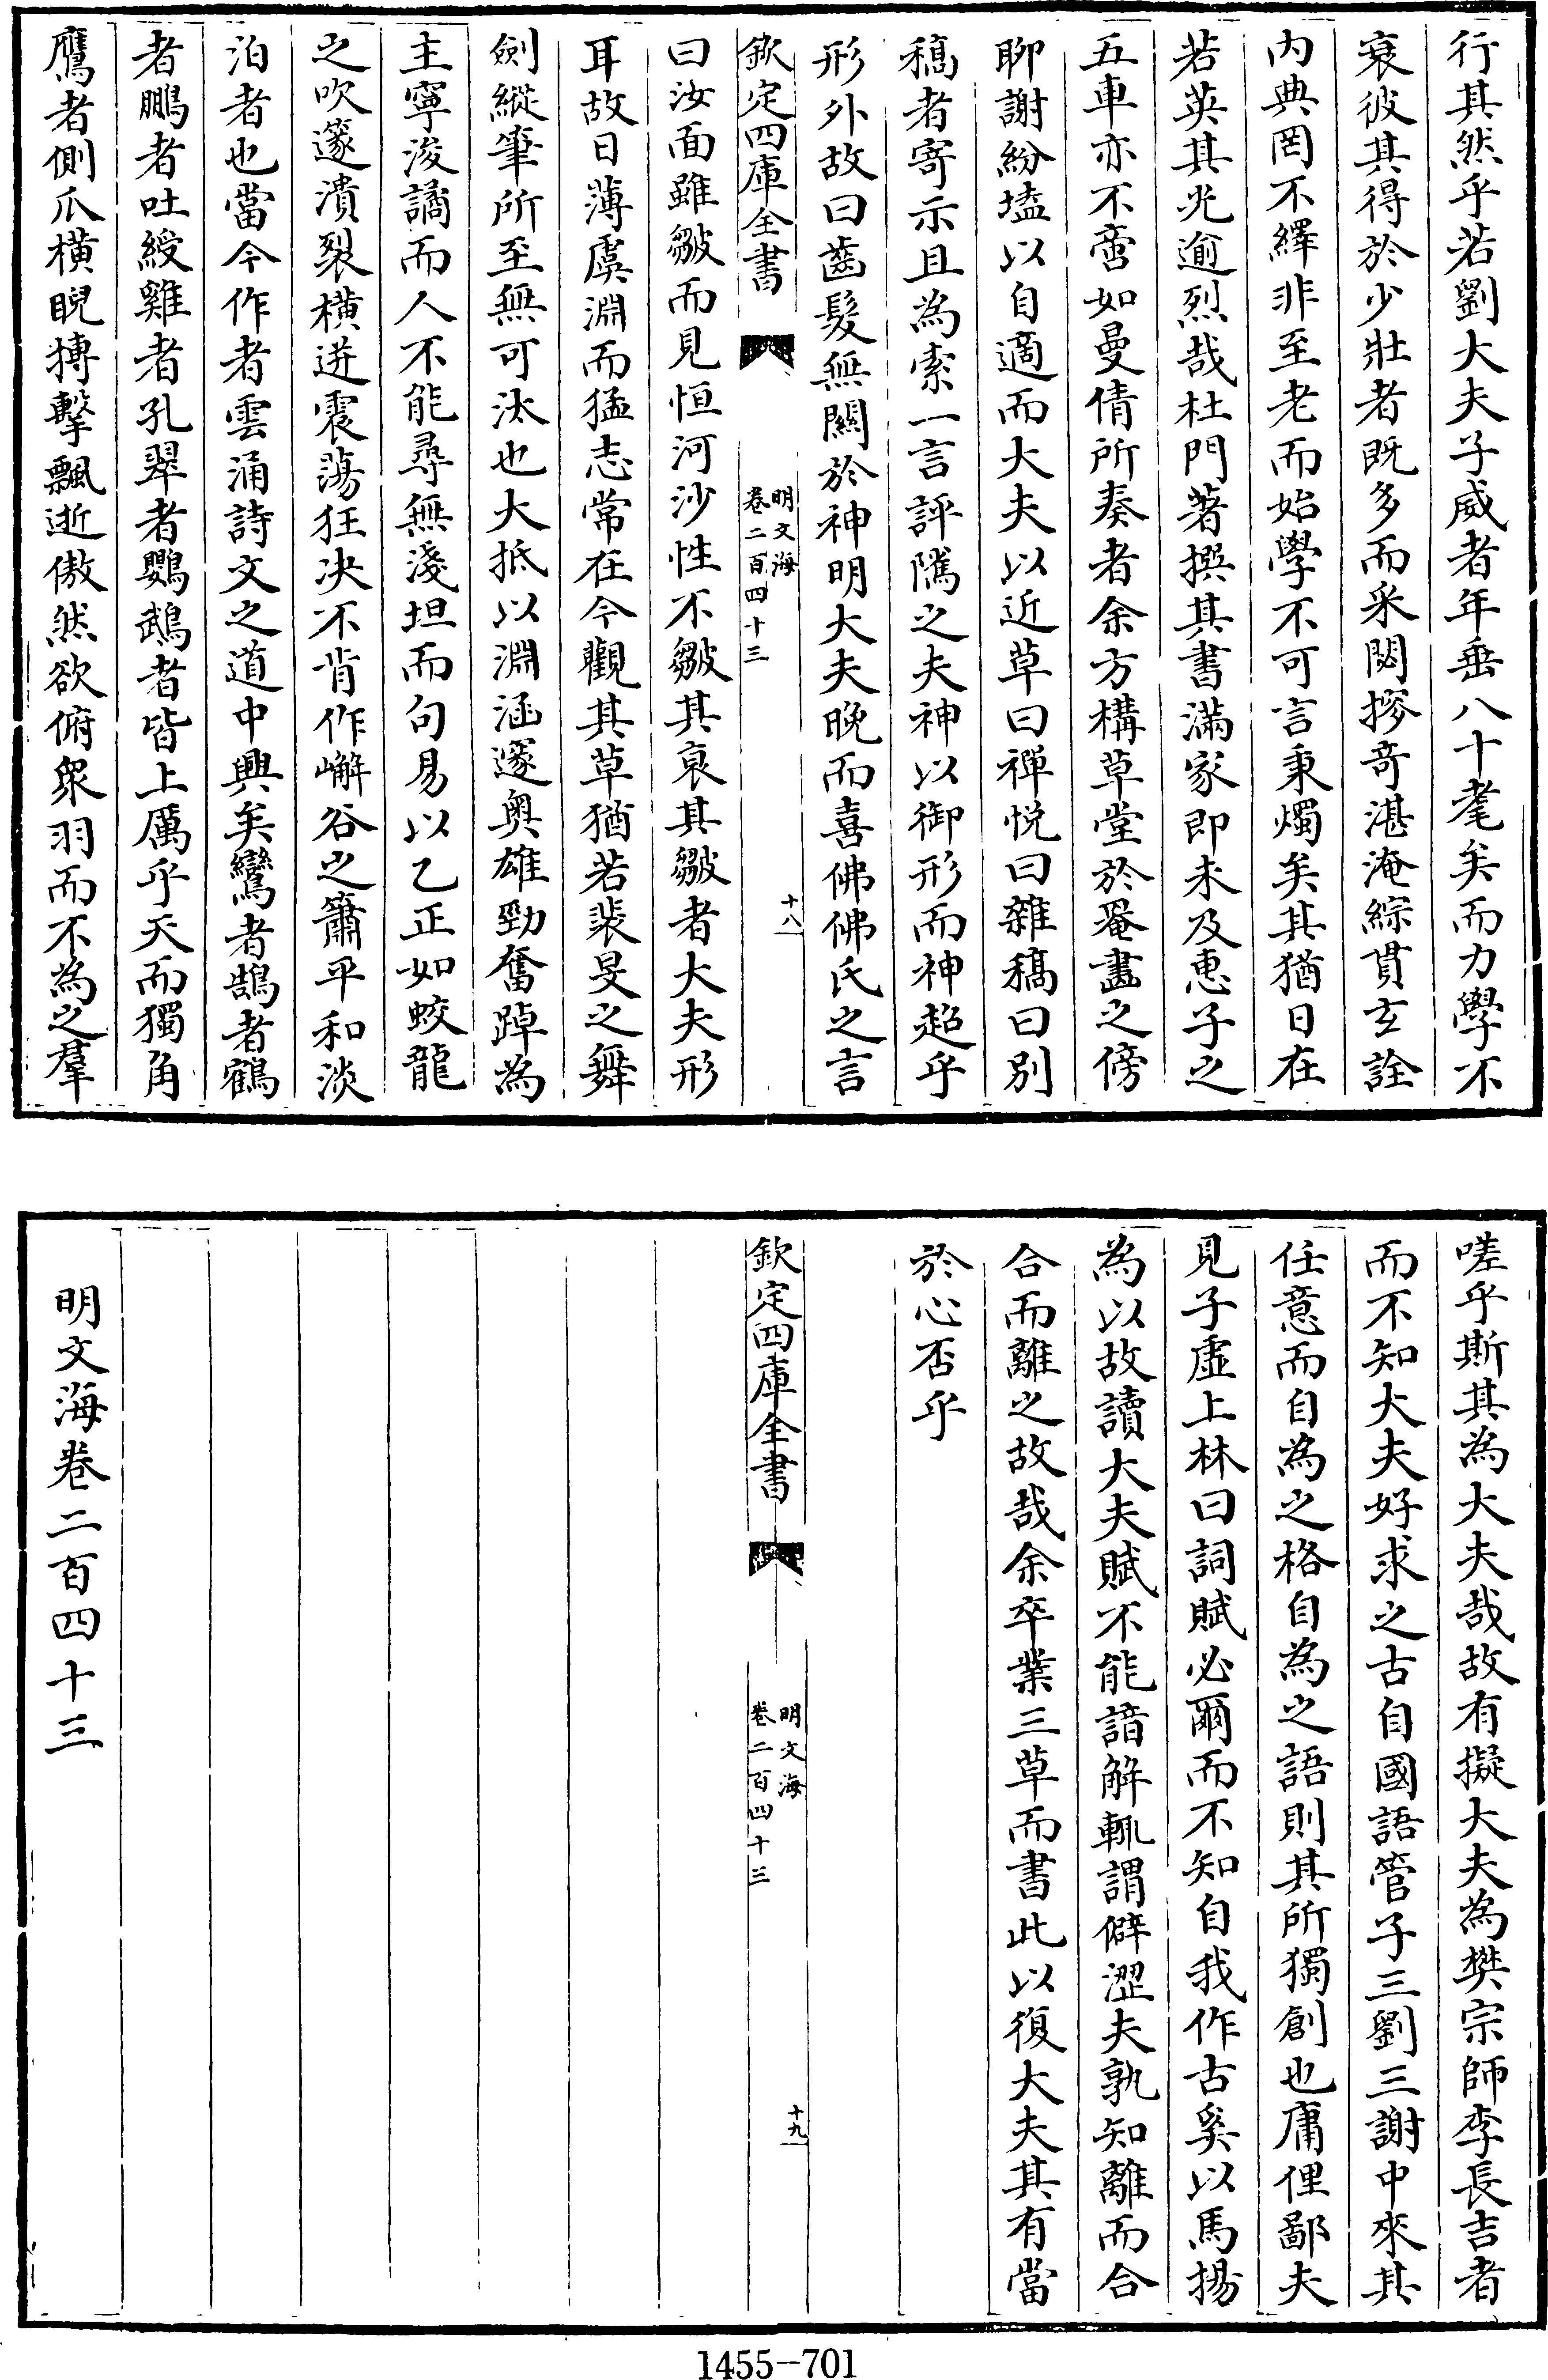 行其然乎若劉大夫子威者年垂八十耄矣而力學不
衰彼其得於少壯者既多而采閎摉奇湛淹綜貫玄詮
内典罔不繹非至老而始學不可言秉燭矣其猶日在
若英其光逾烈哉杜門著撰其書滿家即未及惠子之
五車亦不啻如曼倩所奏者余方構草堂於罨畫之傍
聊謝紛壒以自適而大夫以近草曰禪悅曰雜稿曰別
稿者寄示且為索一言評隲之夫神以御形而神超乎
形外故曰齒髮無關於神明大夫晚而喜佛佛氏之言
欽定四庫全書
明文海
卷二百四十三
十八
曰汝面雖皺而見恒河沙性不皺其衰其皺者大夫形
耳故日薄虞淵而猛志常在今觀其草猶若裴旻之舞
劍縱筆所至無可汰也大抵以淵涵邃奥雄勁奮踔為
主寧浚譎而人不能尋無淺坦而句易以乙正如蛟龍
之吹邃潰裂橫迸震蕩狂决不肯作嶰谷之簫平和淡
泊者也當今作者雲涌詩文之道中興矣鸞者鵠者鶴
者鵬者吐綬雞者孔翠者鸚鵡者皆上厲乎天而獨角
鷹者側爪橫睨搏擊飄逝傲然欲俯衆羽而不為之羣
嗟乎斯其為大夫哉故有擬大夫為樊宗師李長吉者
而不知大夫好求之古自國語管子三劉三謝中來其
任意而自為之格自為之語則其所獨創也庸俚鄙夫
見子虛上林曰詞賦必爾而不知自我作古奚以馬揚
為以故讀大夫賦不能諳解輒謂僻澀夫孰知離而合
合而離之故哉余卒業三草而書此以復大夫其有當
於心否乎
欽定四庫全書
明文海
卷二百四十三
十九
明文海卷二百四十三
1455-701